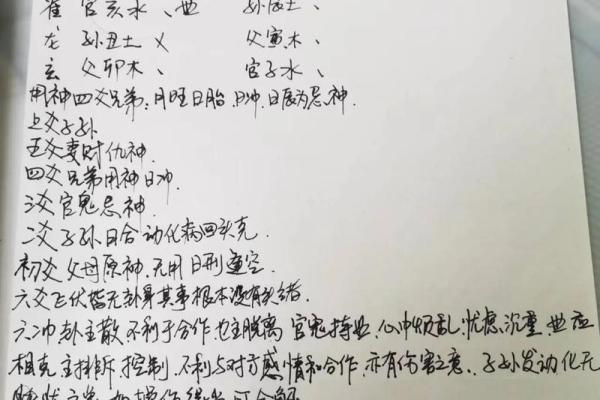 雀 官亥水、世 孙辰土、
龙 孙丑土 乂 父寅木、
玄 父卯木、 官子水、
用神四爻兄弟:月旺日胎,日冲,日辰为忌神.
上爻子孙
五爻妻财仇神.
四爻兄弟用神日冲.
三爻官鬼忌神.
二爻子孙日合动化病回头克.
初爻父母原神.无用日刑重空.
六爻飞伏皆无卦身其事根本没有头绪.
六冲卦主散不利于合作也主脱离 官鬼持世,心中烦乱,忧虑沉重,世应
相克.主排斥控制,不利与对方感情和合作,亦有伤害之意.子孙发动化无